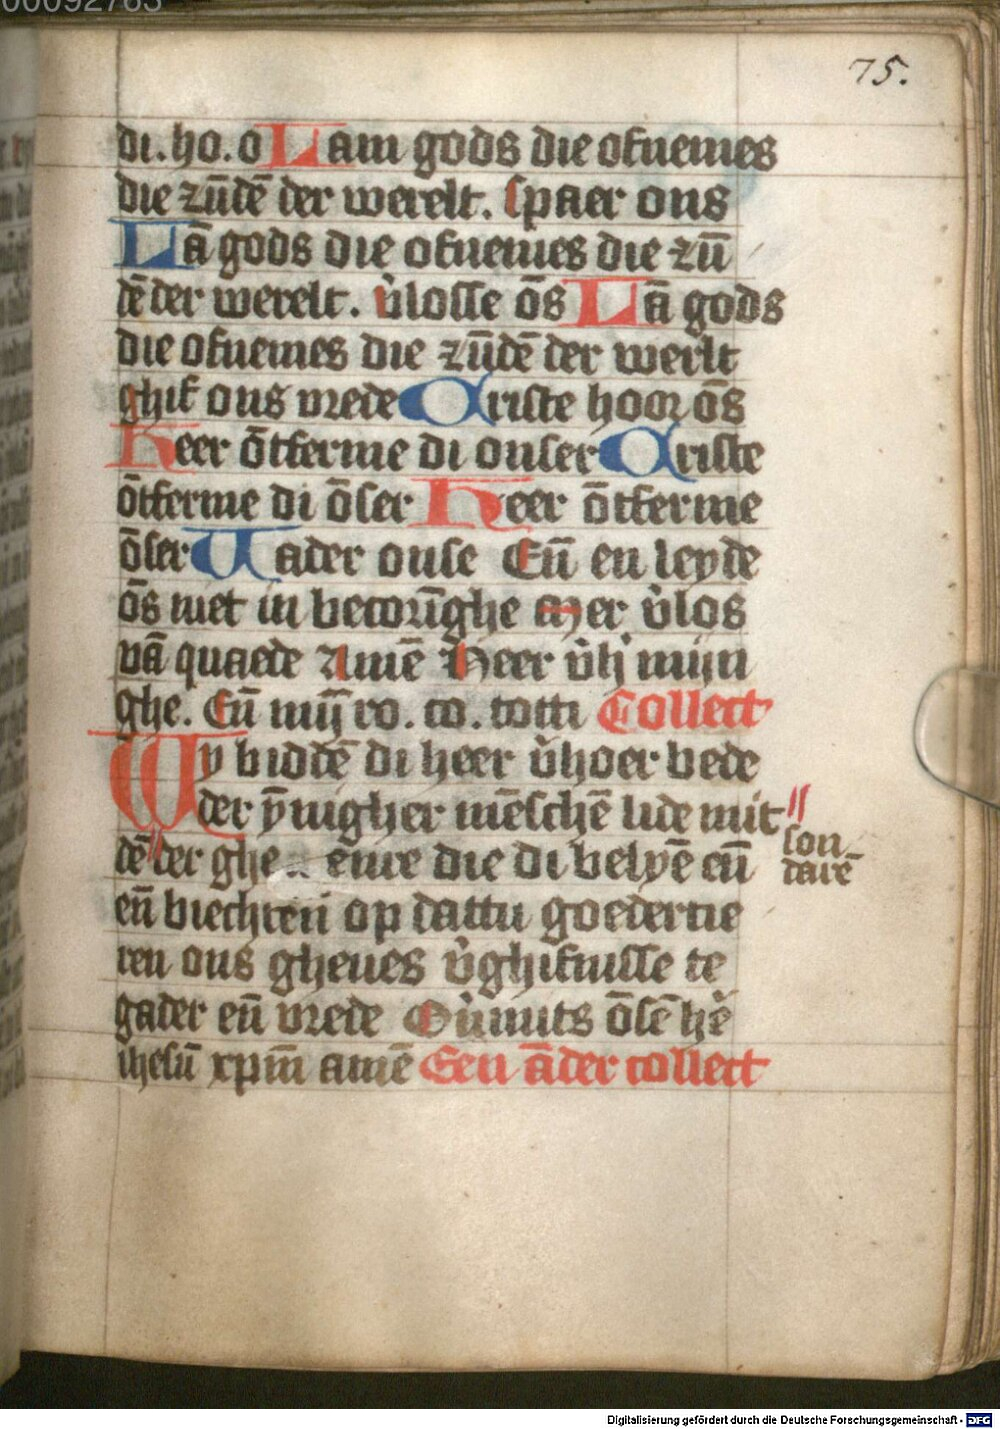 00092763
75.
di. ho. o Lam gods die ofnemes
die zu̅de̅ der werelt. spaer ons
La̅ gods die ofnemes die zu̅
de̅ der werelt. v̓losse o̅s La̅ gods
die ofnemes die zu̅de̅ der werlt
ghif ons vrede Criste hoor o̅s
Heer o̅tferme di onser Criste
o̅tferme di o̅ser Heer o̅tferme
o̅ser Vader onse En̅ en leyde
o̅s niet in becori̅ghe mer v̓los
va̅ quaede Ame̅ Heer v̓h' mijn
ghe. En̅ mij̅ ro. co. totti Collect
Wy bidde̅ di heer v̓hoer bede
der y̅nigher me̅sche̅ lide mit //
son
de̅ // der ghe enre die di belye̅ en̅
dare̅
en̅ biechten op dattu goedertie
ren ons gheues v̓ghifnisse te
gader en̅ vrede Ov̓mits o̅se̅ he̅r
ihesu̅ xpm̅ ame̅ Een a̅der collect
Digitalisierung gefördert durch die Deutsche Forschungsgemeinschaft - DFG